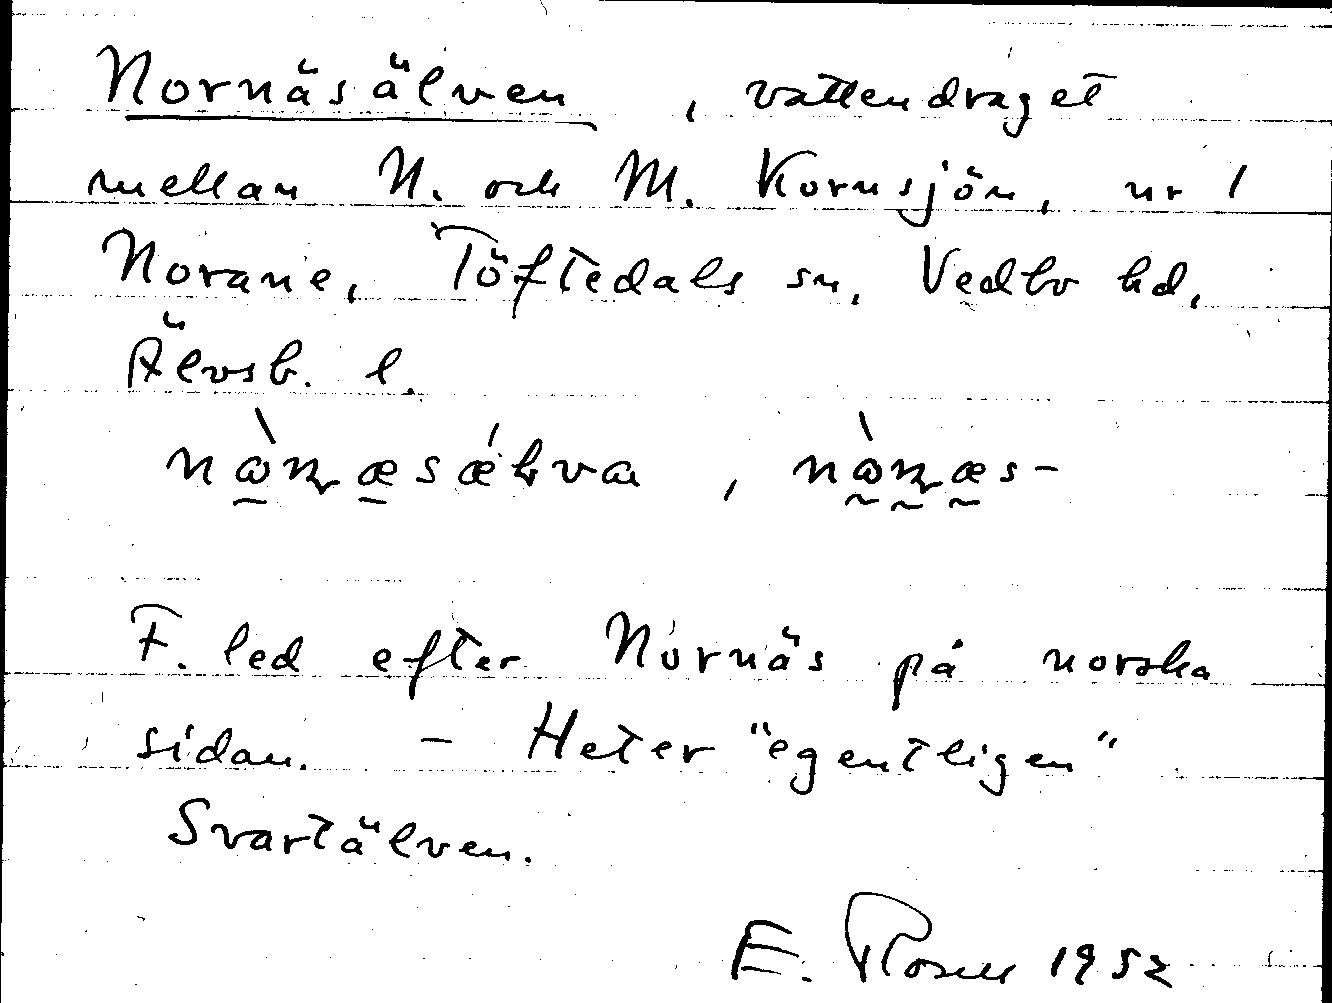 Nornäsälven, vattendraget
mellan N. och M. Kornsjön, nr 1
Norane, Töftedals sn, Vedbo hd,
Älvsb. l.
F. led efter Nornäs på norska
sidan. - Heter "egentligen"
Svartälven.
E. 1952